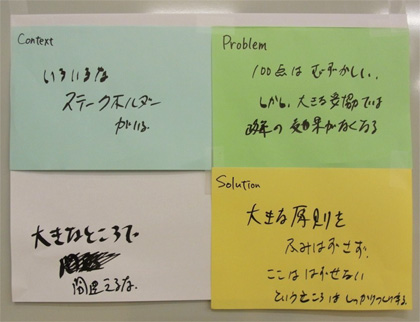 Context
いろいろな
ステークホルダー
がいる.
Problem
100点は むずかしい.
しかし, 大きな妥協では
政策の 効果がなくなる
大きなところで
間違えるな.
Solution
大きな原則を
ふみはずさず.
ここは はずせない
というところは しっかり